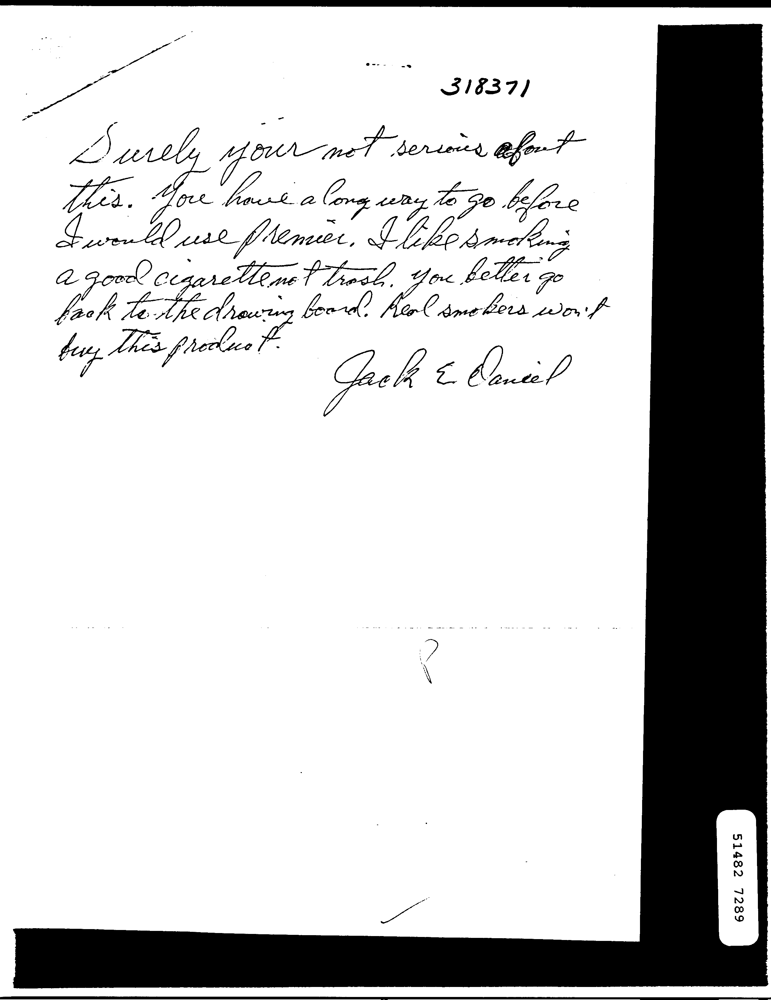 318371
Surely your not serious about
this. You have a long way to go before
I would use Premier. I like smoking
a good cigarette not trash. You better go
back to the drawing board. Real smokers won't
buy this product.
Jack E Daniel
51482 7289